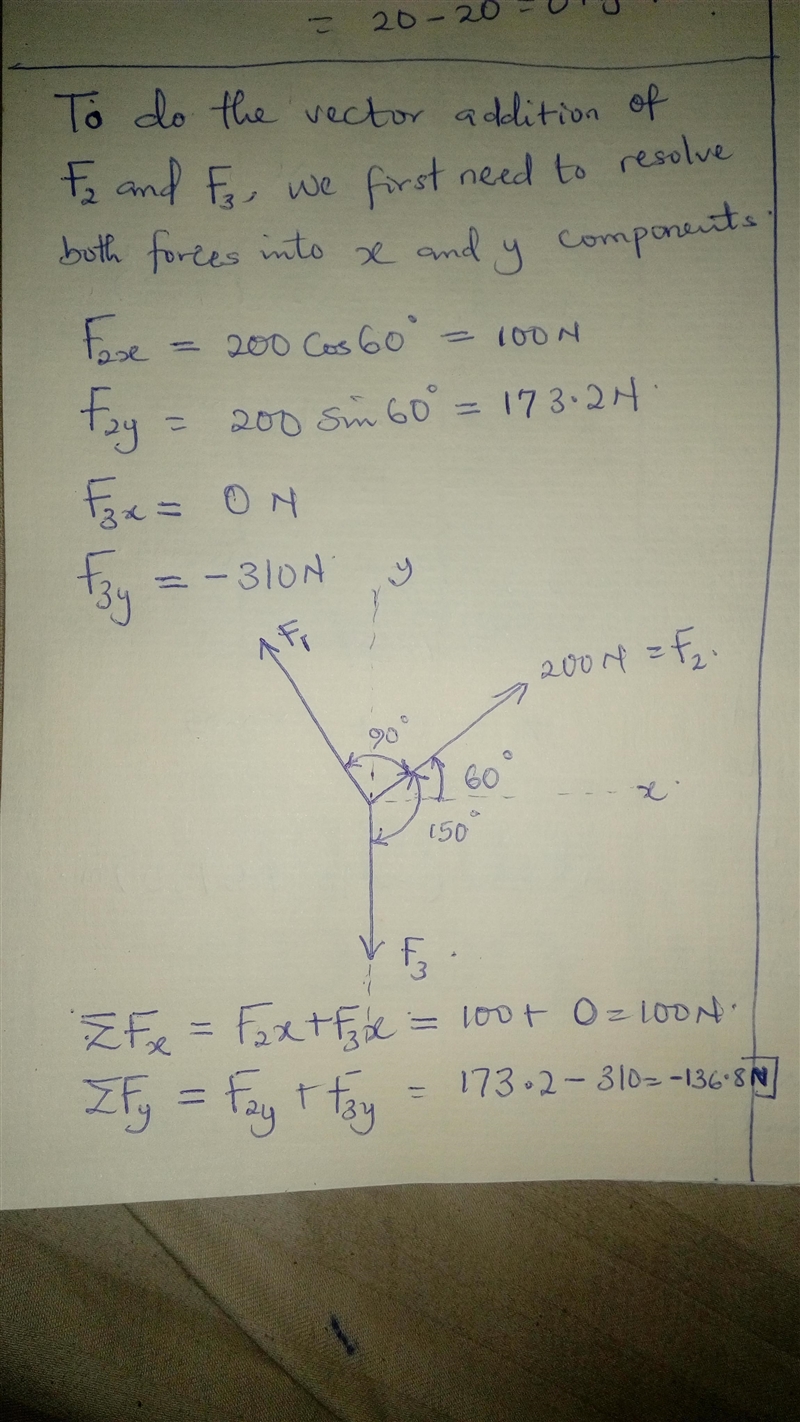 = 20 - 20 = 0
To do the vector addition of
F₂ and F₃, we first need to resolve
both forces into x and y components.
F₂ₓ = 200 Cos 60° = 100 N
F₂y = 200 Sin 60° = 173.2 N.
F₃ₓ = 0 N
F₃y = -310 N
y
F₁
200 N = F₂.
90°
60°
x.
150°
F₃.
ΣFₓ = F₂x + F₃x = 100 + 0 = 100 N.
ΣFy = F₂y + F₃y = 173.2 - 310 = -136.8 N